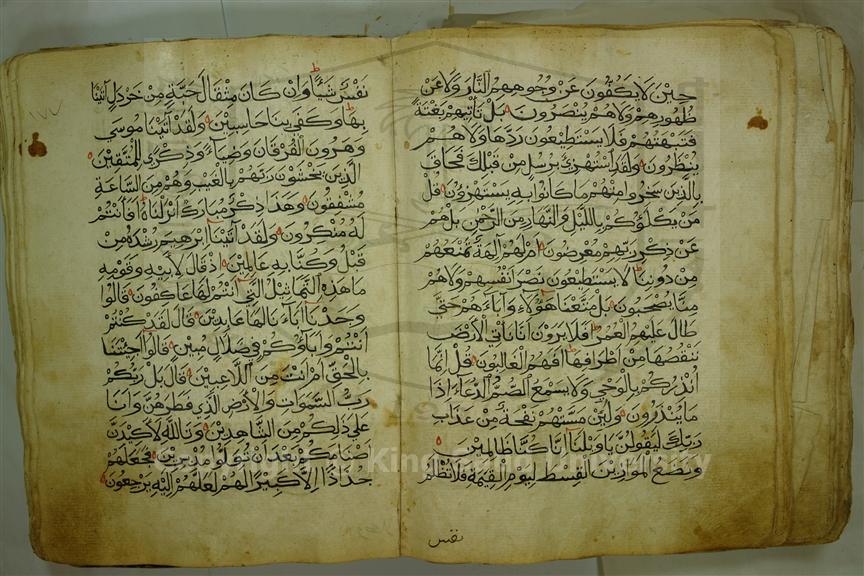 حين لا يكفون عن وجوههم النار ولا عن
ظهورهم ولا هم ينصرون بل تأتيهم بغتة
فتبهتهم فلا يستطيعون ردها ولا هم
ينظرون ولقد استهزئ برسل من قبلك فحاق
بالذين سخروا منهم ما كانوا به يستهزؤن قل
من يكلؤكم بالليل والنهار من الرحمن بل هم
عن ذكر ربهم معرضون ام لهم آلهة تمنعهم
من دوننا لا يستطيعون نصر انفسهم ولا هم
منا يصحبون بل متعنا هؤلاء وآباءهم حتى
طال عليهم العمر افلا يرون انا ناتي الارض
ننقصها من اطرافها افهم الغالبون قل انما
انذركم بالوحي ولا يسمع الصم الدعاء اذا
ما ينذرون ولئن مستهم نفحة من عذاب
ربك ليقولن يا ويلنا انا كنا ظالمين
ونضع الموازين القسط ليوم القيمة فلا تظلم
نفس
١٧٧
نفس شيئا وان كان مثقال حبة من خردل اتينا
بها وكفى بنا حاسبين ولقد اتينا موسى
وهرون الفرقان وضياء وذكرى للمتقين
الذين يخشون ربهم بالغيب وهم من الساعة
مشفقون وهذا ذكر مبارك انزلناه افانتم
له منكرون ولقد اتينا ابرهيم رشده من
قبل وكنا به عالمين اذ قال لابيه وقومه
ما هذه التماثيل التي انتم لها عاكفون قالوا
وجدنا اباءنا لها عابدين قال لقد كنتم
انتم وآباؤكم في ضلال مبين قالوا اجئتنا
بالحق ام انت من اللاعبين قال بل ربكم
رب السموات والارض الذي فطرهن وانا
على ذلكم من الشاهدين وتالله لاكيدن
اصنامكم بعد ان تولوا مدبرين فجعلهم
جذاذا الا كبيرا لهم لعلهم اليه يرجعون